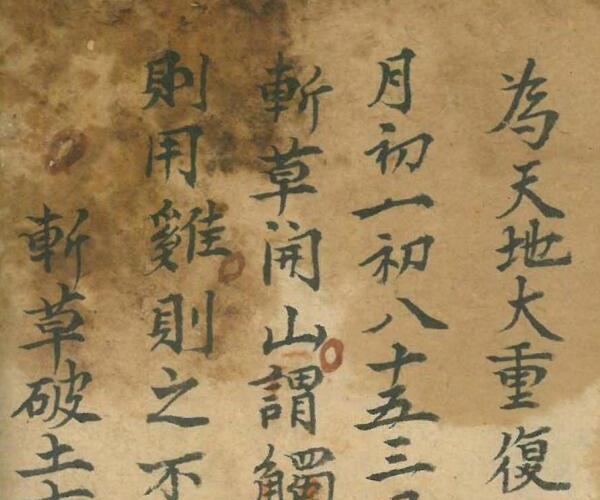 為天地大重復
月初一初八十五三
斬草開山謂觸
則用雞則之不
斬草破土